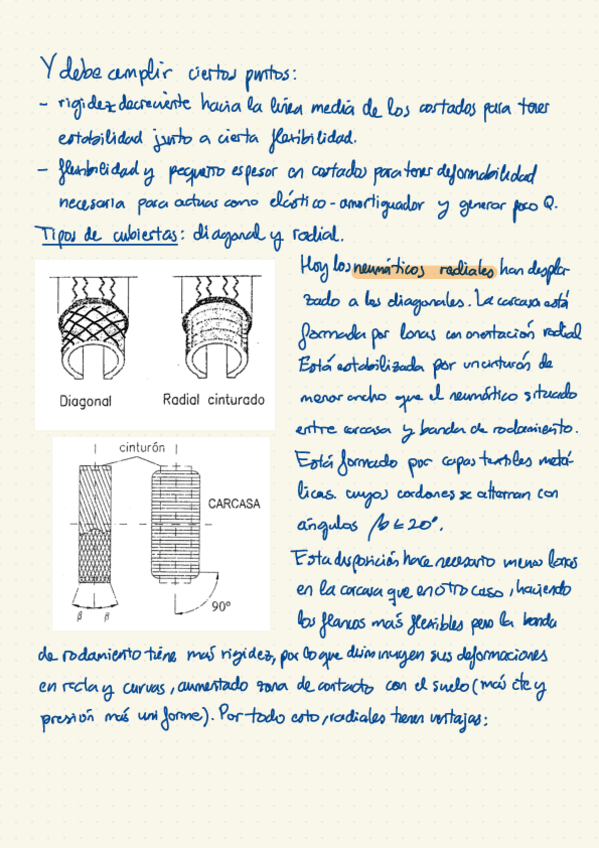 Y debe cumplir ciertos puntos:
- rigidez decreciente hacia la línea media de los costados para tener
estabilidad junto a cierta flexibilidad.
- flexibilidad y pequeño espesor en costados para tener deformabilidad
necesaria para actuar como elástico-amortiguador y generar poco Q.
Tipos de cubiertas: diagonal y radial.
Diagonal
Radial cinturado
cinturón
CARCASA
90°
β β
Hoy los neumáticos radiales han despla-
zado a los diagonales. La carcasa está
formada por lonas con orientación radial
Está estabilizada por un cinturón de
menor ancho que el neumático situado
entre carcasa y banda de rodamiento.
Está formado por capas textiles metá-
licas. cuyos cordones se alternan con
ángulos β ≤ 20°.
Esta disposición hace necesario menos lonas
en la carcasa que en otro caso, haciendo
los flancos más flexibles pero la banda
de rodamiento tiene más rigidez, por lo que disminuyen sus deformaciones
en recta y curvas, aumentado zona de contacto con el suelo (más cte y
presión más uniforme). Por todo esto, radiales tienen ventajas: